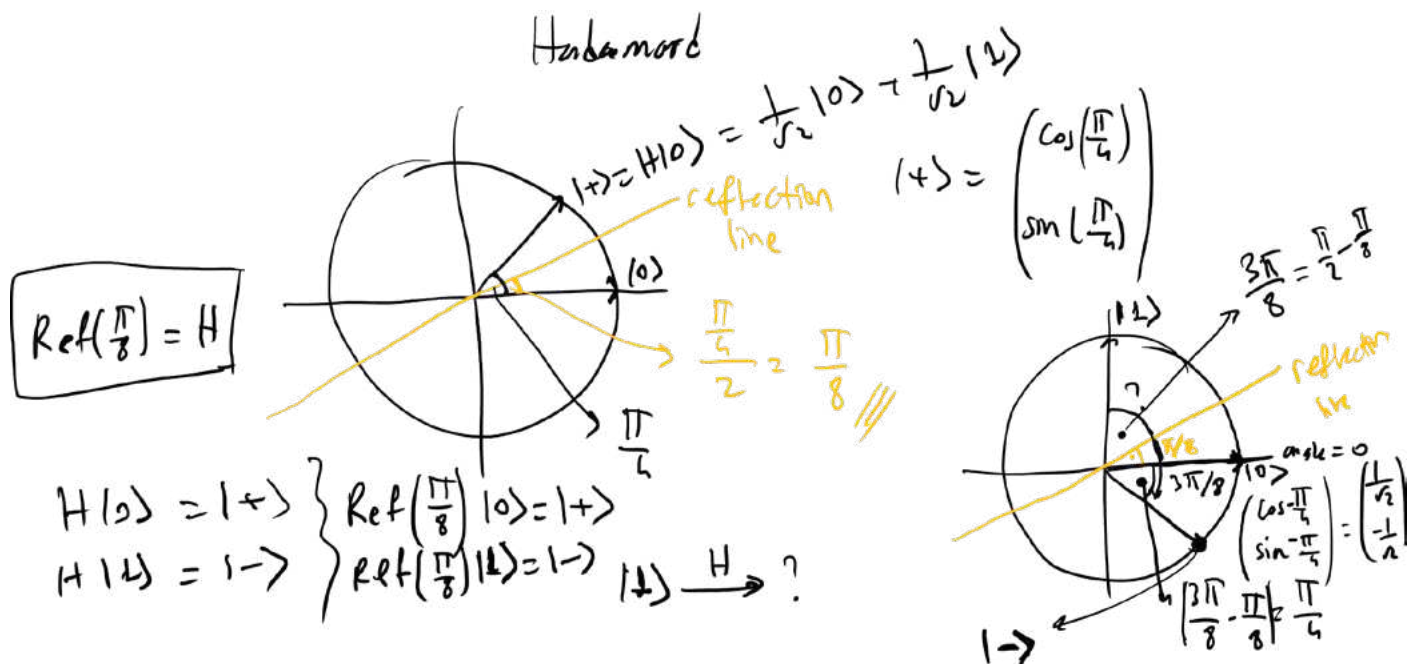 Hadamard
|+> = H|0> = 1/√2 |0> + 1/√2 |1>
|+> = (cos(π/4) sin(π/4))
reflection
line
|0>
Ref(π/8) = H
π/4 / 2 = π/8
π/4
H|0> = |+>
H|1> = |->
Ref(π/8)|0> = |+>
Ref(π/8)|1> = |->
|1> H → ?
3π/8 = π/2 - π/8
|1>
reflection
line
?
π/8
3π/8
|0>
angle = 0
(cos -π/4 sin -π/4) = (1/√2 -1/√2)
|3π/8 - π/8| = π/4
|->